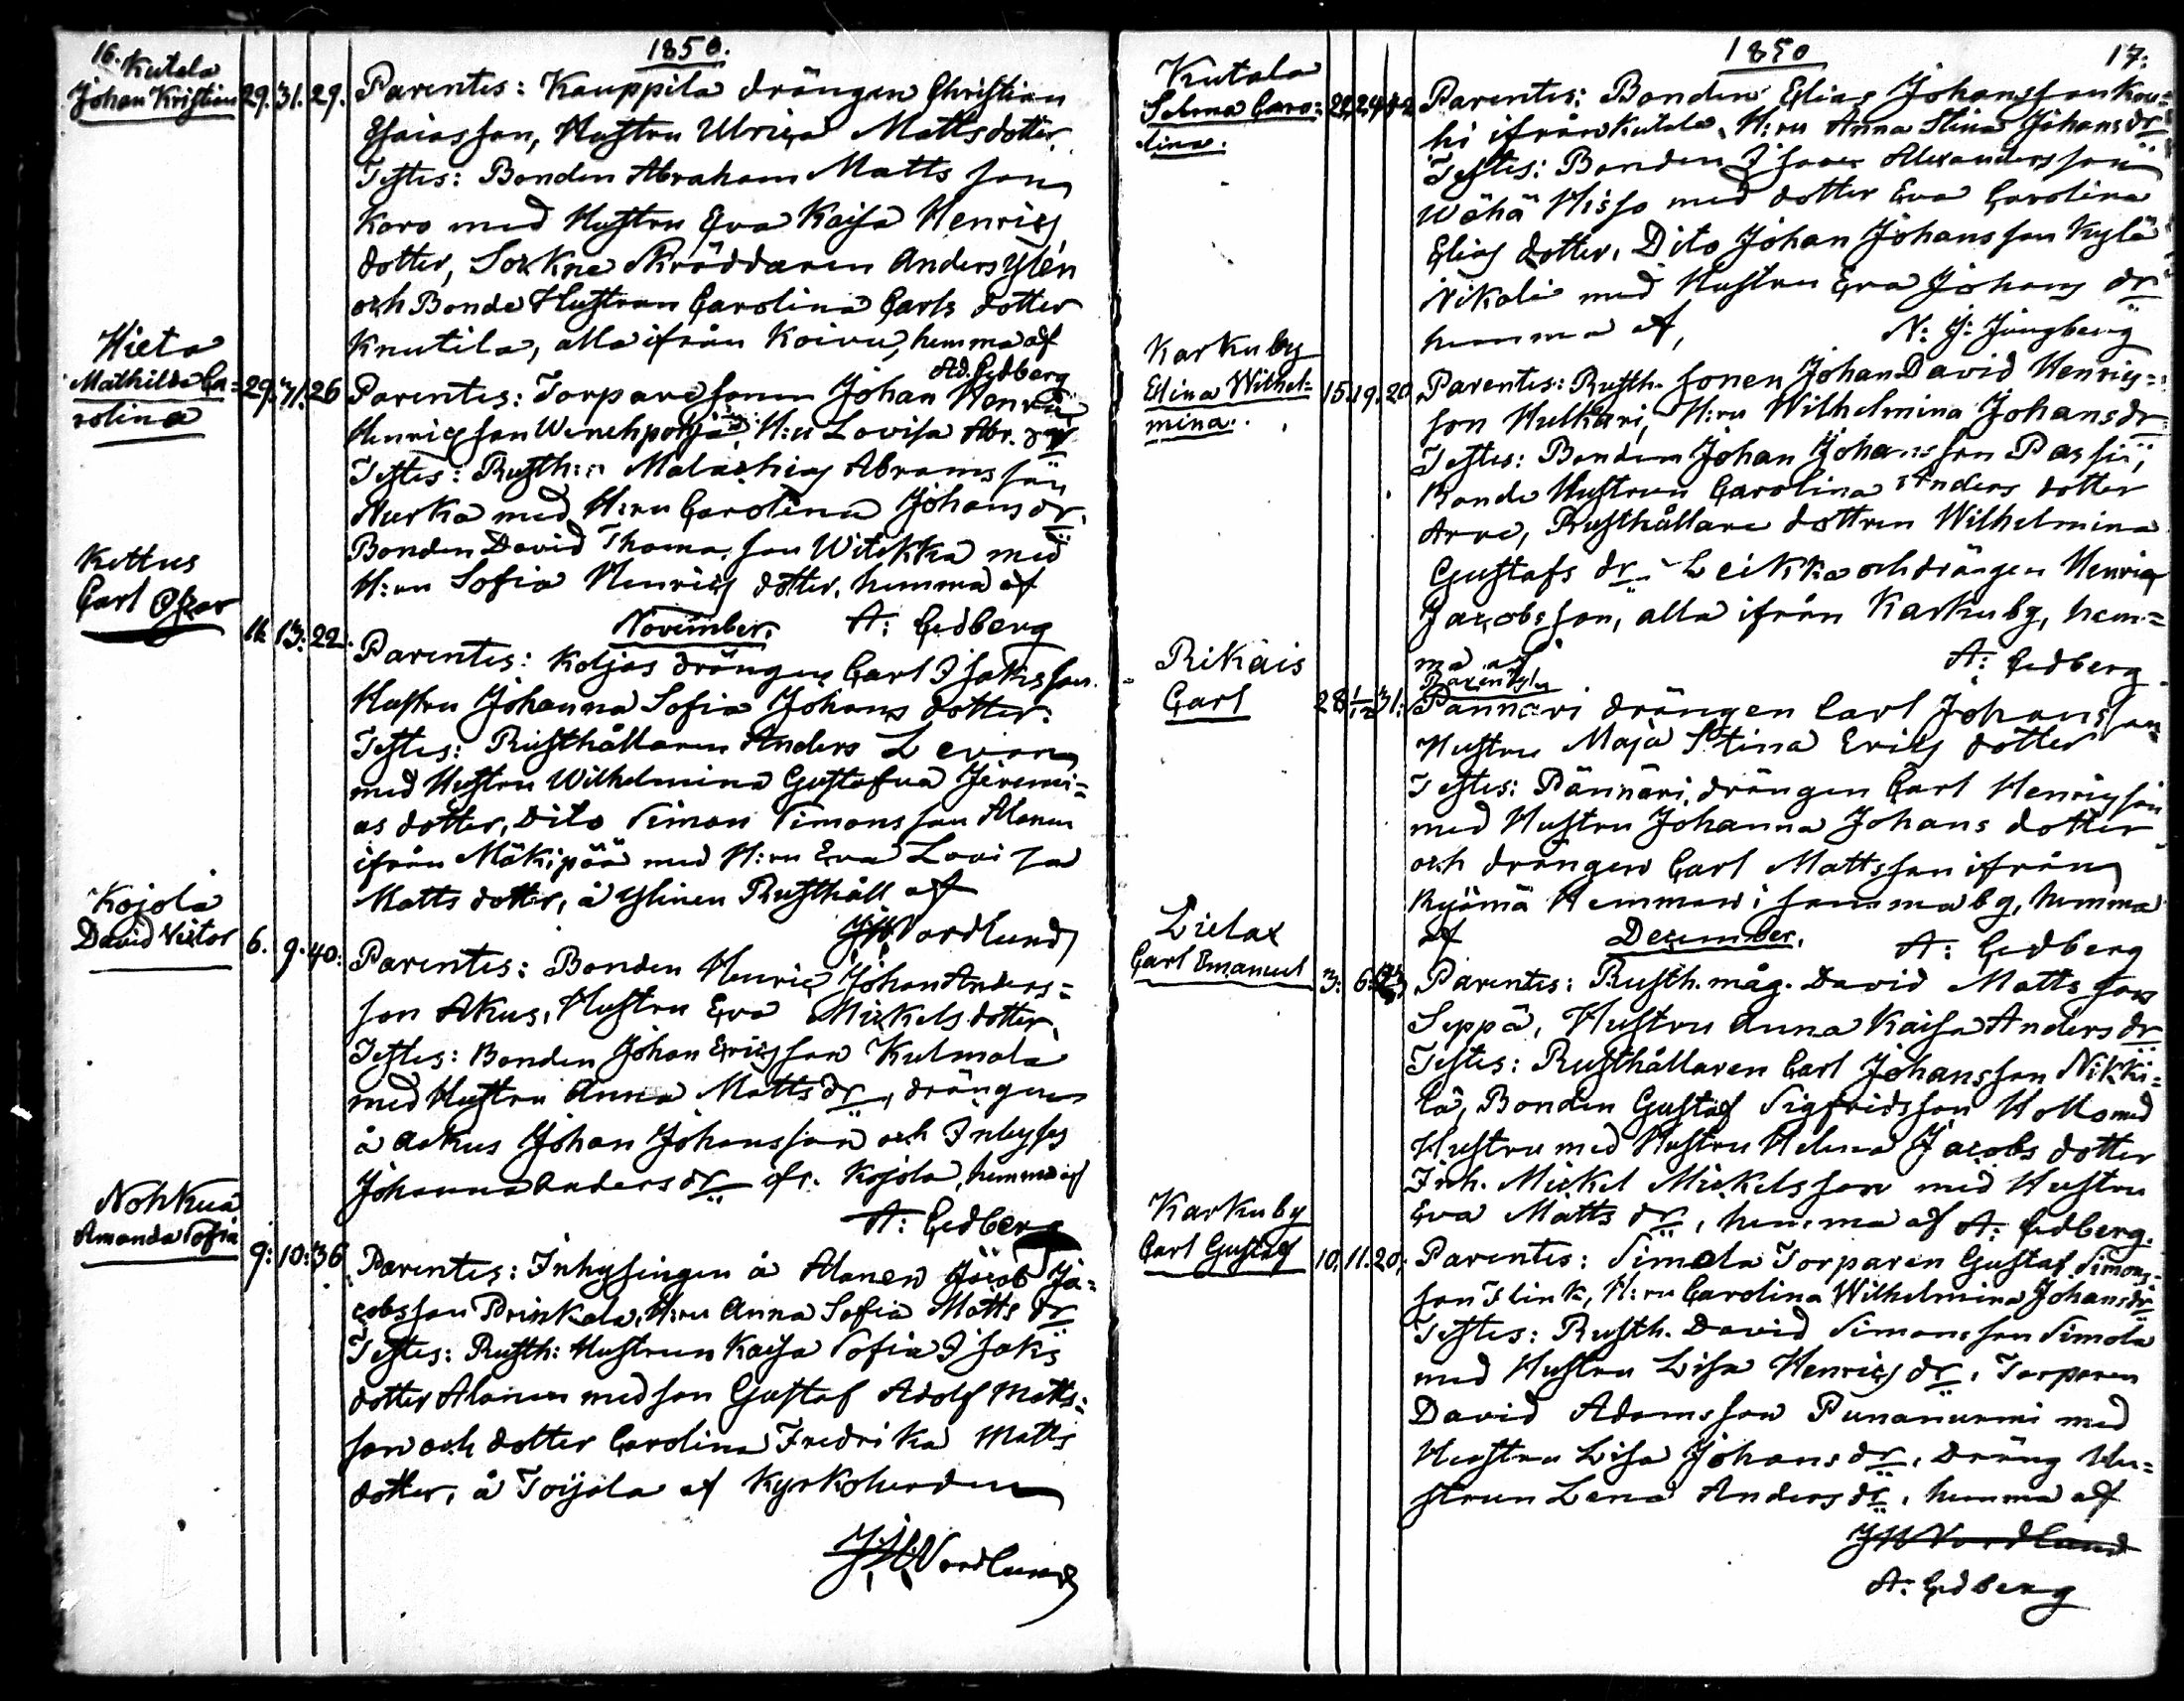 16. 1850.
Kutala
Johan Kristian 29. 31. 29. Parentes: Kauppila drängen Christian
Esaiasson, Hustru Ulrica Mattsdotter.
Testes: Bonden Abraham Matts son
Karo med Hustru Eva Kaisa Henrics
dotter, Sockne Skräddaren Anders Ylén
och Bonde Hustrun Carolina Carls dotter
Knutila, alla ifrån Koivu, hemma af
Ad. Cedberg
Hieta
Mathilda Ca= 29. 31. 26 Parentes: Torpare sonen Johan Henric
rolina
Henricsson H:u Lovisa Abr. dr
Testes: Rusth:n Malachias Abrams son
Nurka med H:ru Carolina Johans dr.
Bonden David Thomas son Witikka med
H:ru Sofia Henrics dotter, hemma af
A: Cedberg
November.
Kettus
Carl Oscar
11. 13. 22. Parentes: Koljas drängen Carl Isaksson.
Hustru Johanna Sofia Johans dotter.
Testes: Rusthållaren Anders Levion
med Hustru Wilhelmina Gustafva Jeremi=
as dotter, Dito Simon Simons son Alanen
ifrån Mäkipää med H:ru Eva Lovisa
Matts dotter, å Ylinen Rusthåll af
JW Nordlund
Kojola
David Victor 6. 9. 40: Parentes: Bonden Henric Johan Anders=
son Akus, Hustru Eva Mickels dotter.
Testes: Bonden Johan Ericsson Kulmala
med Hustru Anna Matts dr, drängen
å Aakus Johan Johansson och Inhyses
Johanna Anders dr ifr. Kojola, hemma af
A: Cedberg
Nohkua
Amanda Sofia 9: 10: 36 Parentes: Inhysingen å Alanen Jacob Ja=
cobsson Prinkala, H:ru Anna Sofia Matts dr
Testes: Rusth: Hustrun Kaisa Sofia Isaks
dotter Alanen med son Gustaf Adolf Matts=
son och dotter Carolina Fredrika Matts
dotter, å Toijola af Kyrkoherden
Nordlund
1850 17:
Kutala
Selma Caro= Parentes: Bonden Elias Johansson Kou=
lina.
hi ifrån Kutala, H:ru Anna Stina Johans dr
Testes: Bonden Isaac Alexandersson
Wähä Hissa med dotter Eva Carolina
Elias dotter, Dito Johan Johansson Kylä
Nikola med Hustru Eva Johans dr
hemma af, N: J: Jungberg
Karkuby
Edina Wilhel= 15. 19. 20. Parentes: Rusth. sonen Johan David Henrics=
mina.
son Hulkari, H:ru Wilhelmina Johans dr
Testes: Bonden Johan Johansson Passi,
Bonde Hustrun Carolina Anders dotter
Arve, Rusthållare dottren Wilhelmina
Gustafs dr Leikka och drängen Henric
Jacobsson, alla ifrån Karkuby, hem=
ma af A: Cedberg
Rikais
Carl 28 1/12 31: Parentes
Pännäri drängen Carl Johansson
Hustru Maja Stina Erics dotter
Testes: Pännäri drängen Carl Henricsson
med Hustru Johanna Johans dotter
och drängen Carl Mattsson ifrån
Kyämä Hemman i samma by, hemma
af A: Cedberg
December.
Lielax
Carl Emanuel 3: 6: Parentes: Rusth. måg. David Matts son
Seppä, Hustru Anna Kaisa Anders dr
Testes: Rusthållaren Carl Johansson Nikki=
lä, Bonden Gustaf Sigfridsson Hollo med
Hustru med Hustru Helena Jacobs dotter
Inh. Mickel Mickelsson med Hustru
Eva Matts dr, hemma af A: Cedberg.
Karkuby
Carl Gustaf 10. 11. 20. Parentes: Simola Torparen Gustaf Simons=
son Flink, H:ru Carolina Wilhelmina Johans dr
Testes: Rusth. David Simonsson Simola
med Hustru Lisa Henrics dr, Torparen
David Adamsson Punanurmi med
Hustru Lisa Johans dr, Dräng Hu=
strun Lena Anders dr, hemma af
JW Nordlund
A: Cedberg